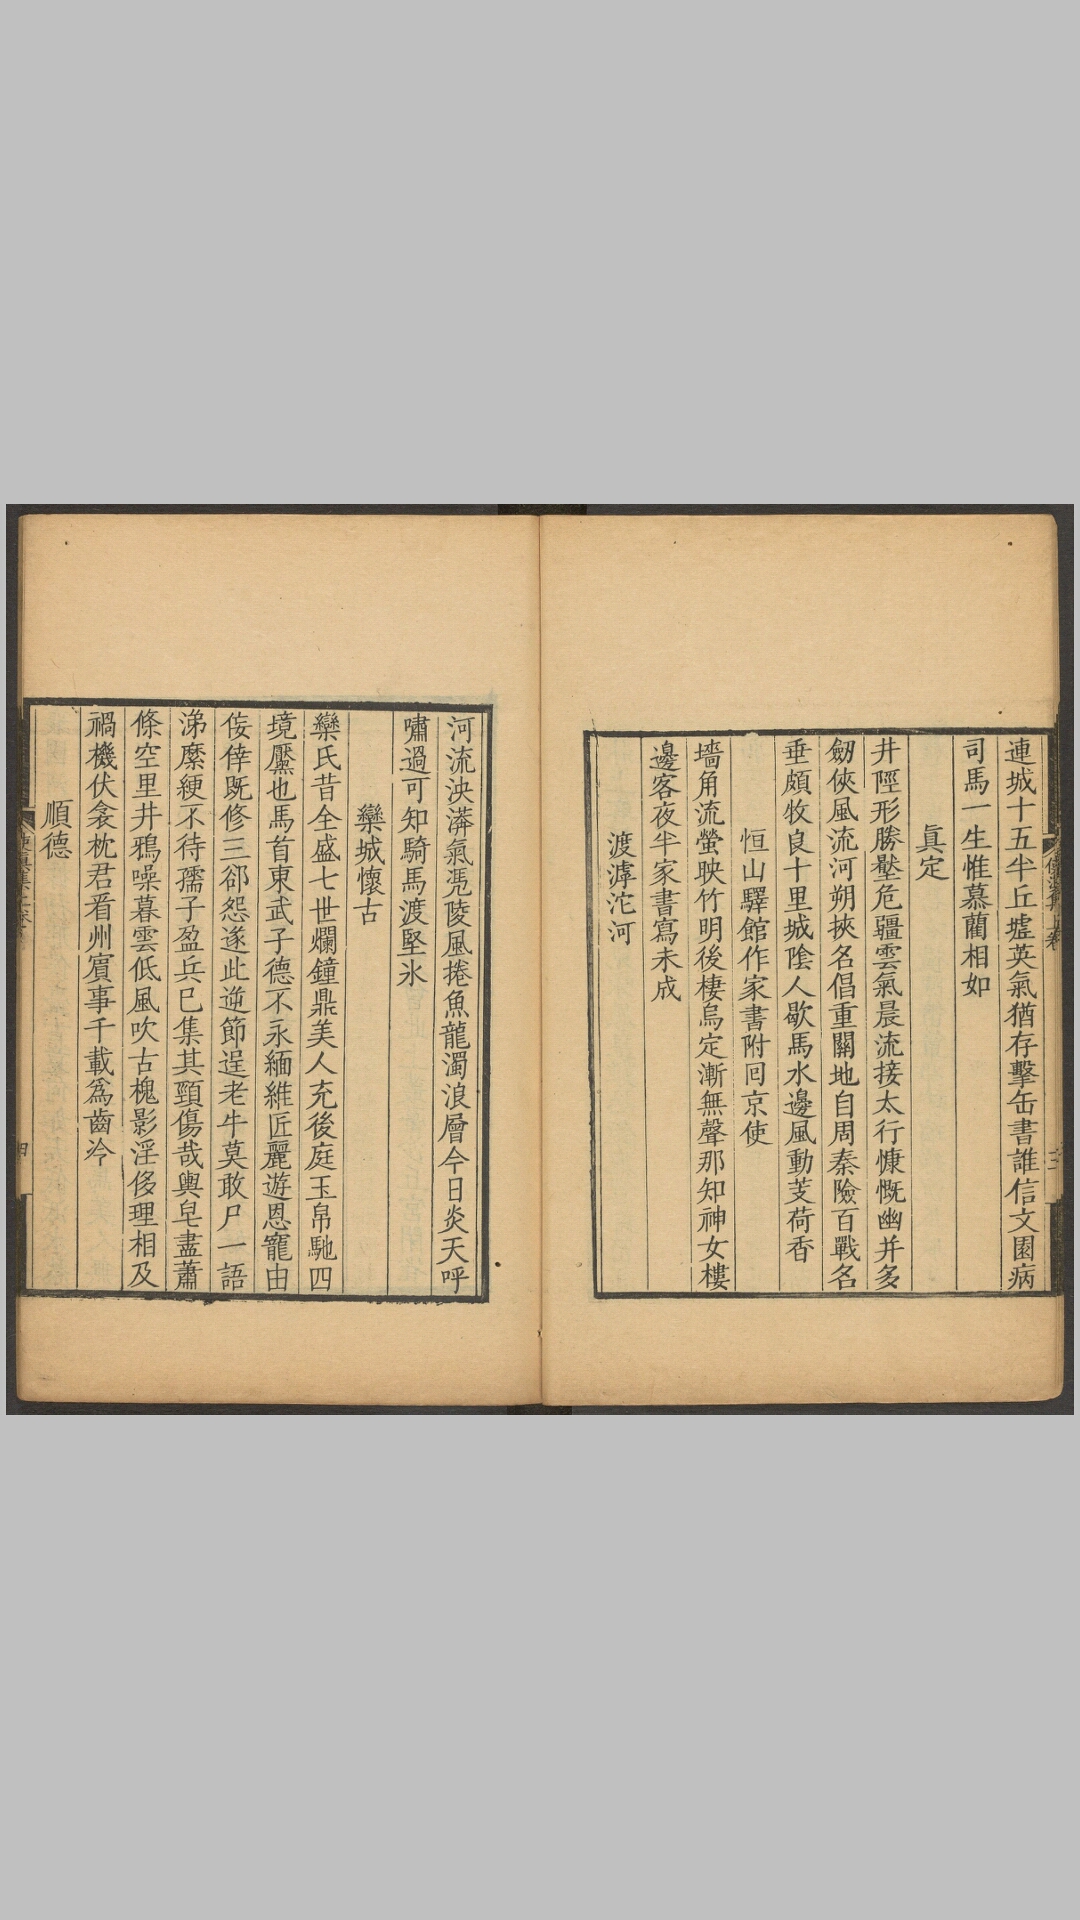 連城十五半丘墟英氣猶存擊缶書誰信文園病
司馬一生惟慕藺相如
眞定
井陘形勝壓危疆雲氣晨流接太行慷慨幽并多
劒俠風流河朔挾名倡重關地自周秦險百戰名
垂頗牧良十里城陰人歇馬水邊風動芰荷香
恒山驛館作家書附囘京使
墻角流螢映竹明後棲烏定漸無聲那知神女樓
邊客夜半家書寫未成
渡滹沱河
河流泱漭氣凴陵風捲魚龍濁浪層今日炎天呼
嘯過可知騎馬渡堅氷
欒城懷古
欒氏昔全盛七世爛鐘鼎美人充後庭玉帛馳四
境黶也馬首東武子德不永緬維匠麗遊恩寵由
侫倖既修三郤怨遂此逆節逞老牛莫敢尸一語
涕縻綆不待孺子盈兵已集其頸傷哉輿皂盡蕭
條空里井鴉噪暮雲低風吹古槐影淫侈理相及
禍機伏衾枕君看州賓事千載爲齒冷
順德
四